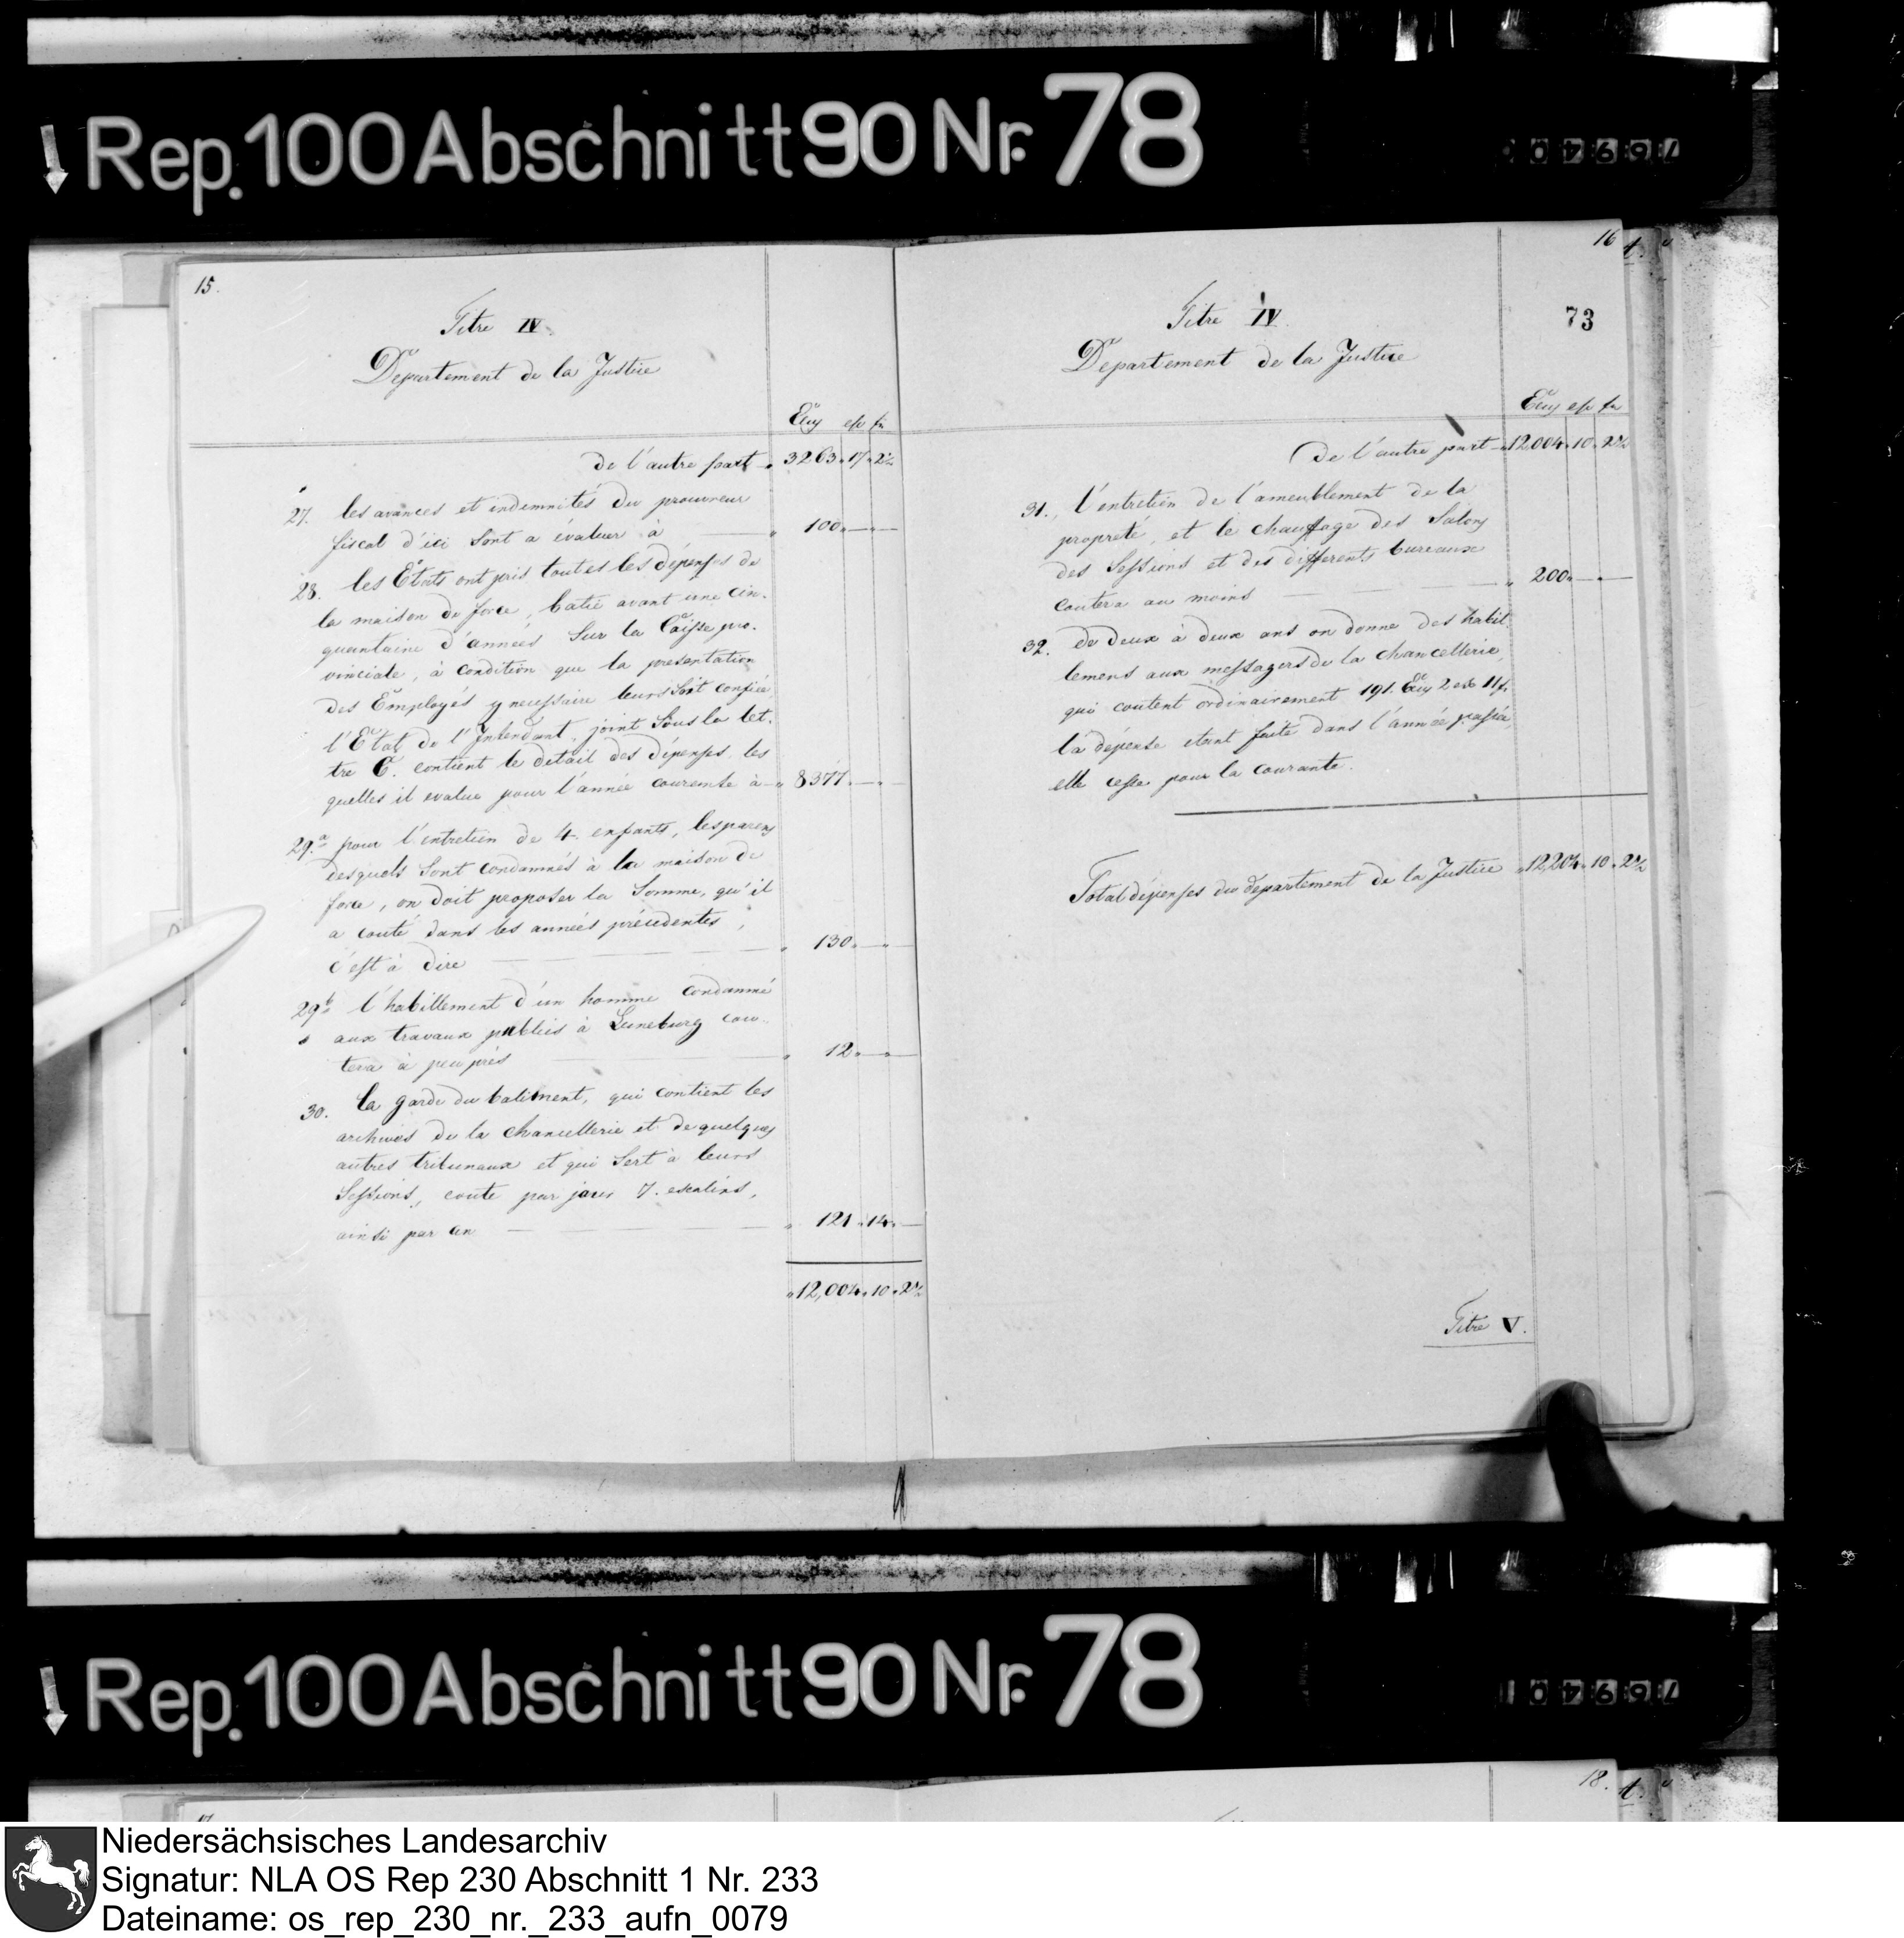 Rep. 100 Abschnitt 90 Nr. 78
15.
Titre IV.
Departement de la Justice
Ecus esc fn
de l'autre part 3263. 17. 2½
27. les avances et indemnités du procureur
fiscal d'ici sont a évaluer à — 100. — —
28. les Etats ont pris toutes les dépenses de
la maison de force, batie avant une cin-
quantaine d'années sur la Caisse pro-
vinciale, à condition que la presentation
des Employés y necessaire leurs soit confiée
l'Etat de l'Intendant, joint sous la let-
tre C. contient le detail des dépenses, les
quelles il evalue pour l'année courente à — 8377. — —
29.a pour l'entretien de 4. enfants, les parens
desquels sont condamnés à la maison de
force, on doit proposer la somme, qu'il
a couté dans les années précedentes,
c'est à dire — 130. — —
29.b l'habillement d'un homme condamné
aux travaux publics à Luneburg cou-
tera à peu près — 12. — —
30. la garde du batiment, qui contient les
archives de la chancellerie et de quelques
autres tribunaux et qui sert à leurs
sessions, coute par jour 7. escalins,
ainsi par an — 121. 14. —
12,004. 10. 2½
16
73
Titre IV.
Departement de la Justice
Ecus esc fn
de l'autre part 12,004. 10. 2½
31. l'entretien de l'ameublement de la
propreté, et le chauffage des salons
des sessions et des differents bureaux
coutera au moins — 200. — —
32. de deux à deux ans on donne des habil
lemens aux messagers de la chancellerie,
qui coutent ordinairement 191. Ecus 2 esc 11 f.
la depense etant faite dans l'année passée,
elle cesse pour la courante.
Total dépenses du departement de la Justice 12,204. 10. 2½
Titre V.
Rep. 100 Abschnitt 90 Nr. 78
18.
Niedersächsisches Landesarchiv
Signatur: NLA OS Rep 230 Abschnitt 1 Nr. 233
Dateiname: os_rep_230_nr._233_aufn_0079